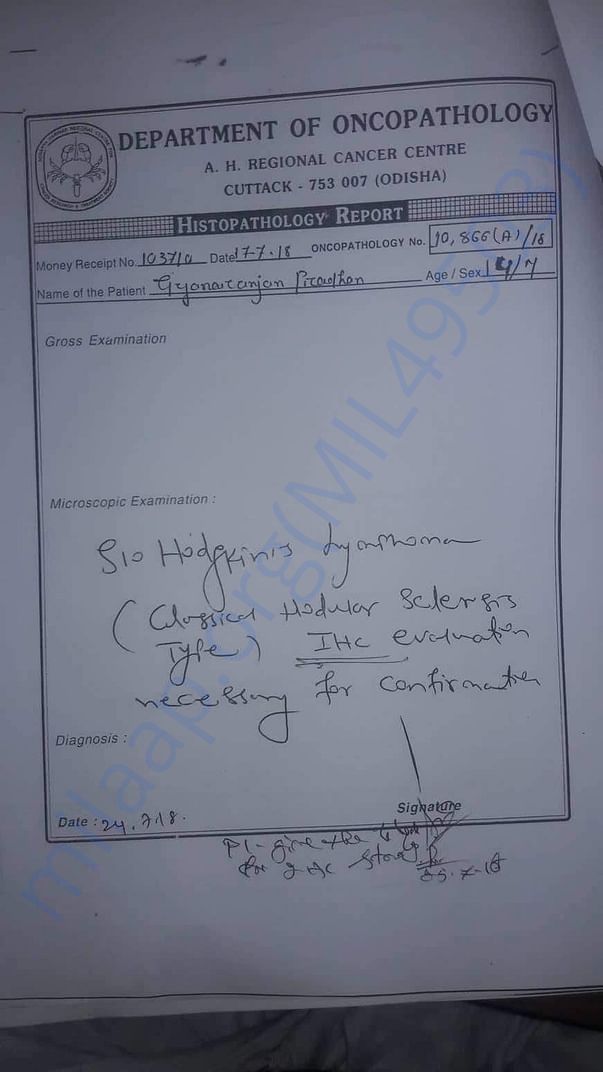 DEPARTMENT OF ONCOPATHOLOGY
A. H. REGIONAL CANCER CENTRE
CUTTACK - 753 007 (ODISHA)
HISTOPATHOLOGY REPORT
Money Receipt No. 10371a Date 17-7.18 ONCOPATHOLOGY No. 10,866(A)/18
Name of the Patient Gyanaranjan Pradhan Age / Sex
Gross Examination
Microscopic Examination :
S/o Hodgkin's Lymphoma
(Classical Nodular Sclerosis
Type) IHC evaluation
necessary for confirmation
Diagnosis :
Signature
Date : 24.7.18.
Pl- give the block
for IHC study
25.7.18
milaap.org(MIL495503)